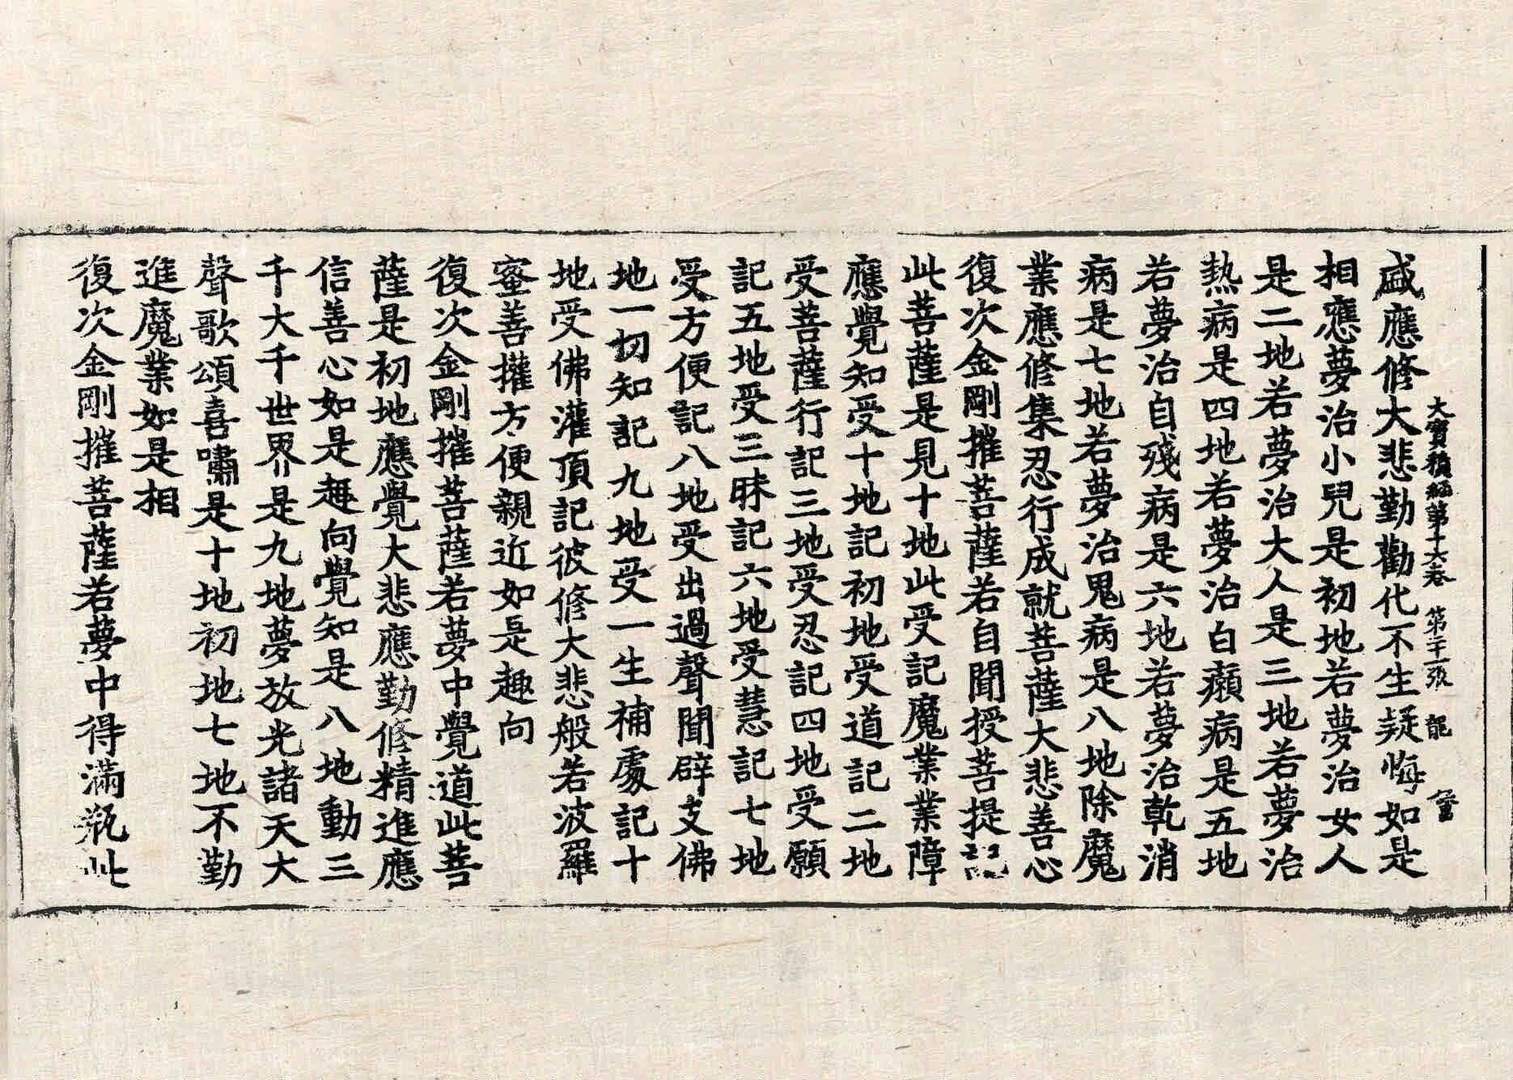 大寶積經第十六卷 第二十一張 龍
盛應修大悲勤勸代不生疑悔如是
相應夢治小兒是初地若夢治女人
是二地若夢治大人是三地若夢治
熱病是四地若夢治白癩病是五地
若夢治自殘病是六地若夢治乾消
病是七地若夢治鬼病是八地除魔
業應修集忍行成就菩薩大悲善心
復次金剛摧菩薩若自聞授菩提記
此菩薩是見十地此受記魔業業障
應覺知受十地記初地受道記二地
受菩薩行記三地受忍記四地受願
記五地受三昧記六地受慧記七地
受方便記八地受出過聲聞辟支佛
地一切知記九地受一生補處記十
地受佛灌頂記彼修大悲般若波羅
蜜善攉方便親近如是趣向
復次金剛摧菩薩若夢中覺道此菩
薩是初地應覺大悲應勤修精進應
信善心如是趣向覺知是八地動三
千大千世界是九地夢放光諸天大
聲歌頌喜嘯是十地初地七地不勤
進魔業如是相
復次金剛摧菩薩若夢中得滿瓶此